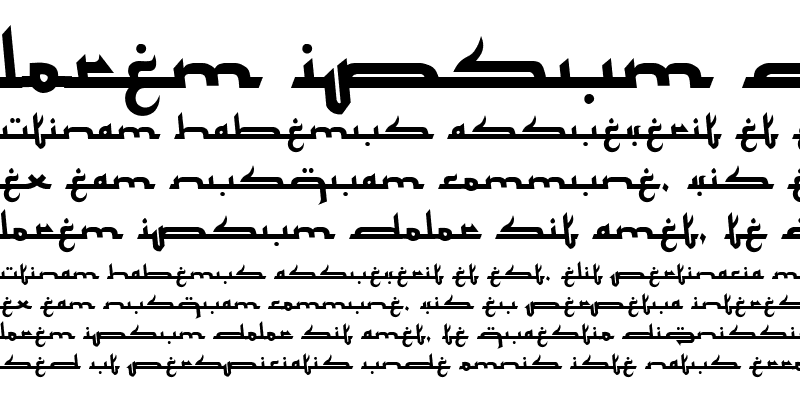 lorem ipsum d
utinam habemus assueverit et
ex eam nusquam commune, vis
lorem ipsum dolor sit amet, te
utinam habemus assueverit et est. elit pertinacia
ex eam nusquam commune, vis eu perpetua
lorem ipsum dolor sit amet, te quaestio
sed ut perspiciatis unde omnis iste natus